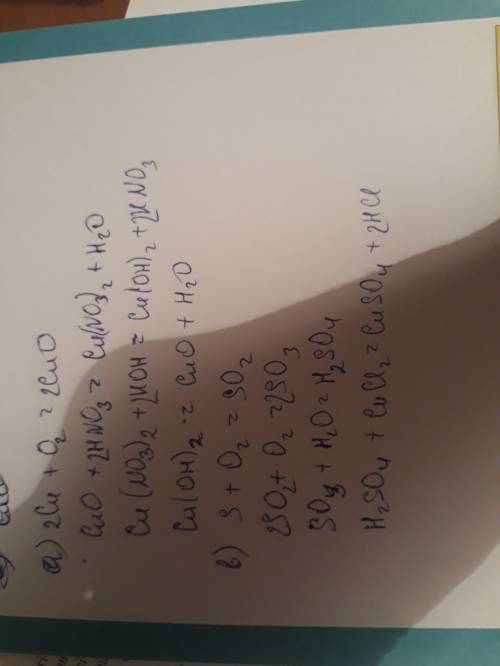 a) 2Cu + O2 = 2CuO
CuO + 2HNO3 = Cu(NO3)2 + H2O
Cu(NO3)2 + 2KOH = Cu(OH)2 + 2KNO3
Cu(OH)2 = CuO + H2O
в) S + O2 = SO2
2SO2 + O2 = 2SO3
SO3 + H2O = H2SO4
H2SO4 + CuCl2 = CuSO4 + 2HCl